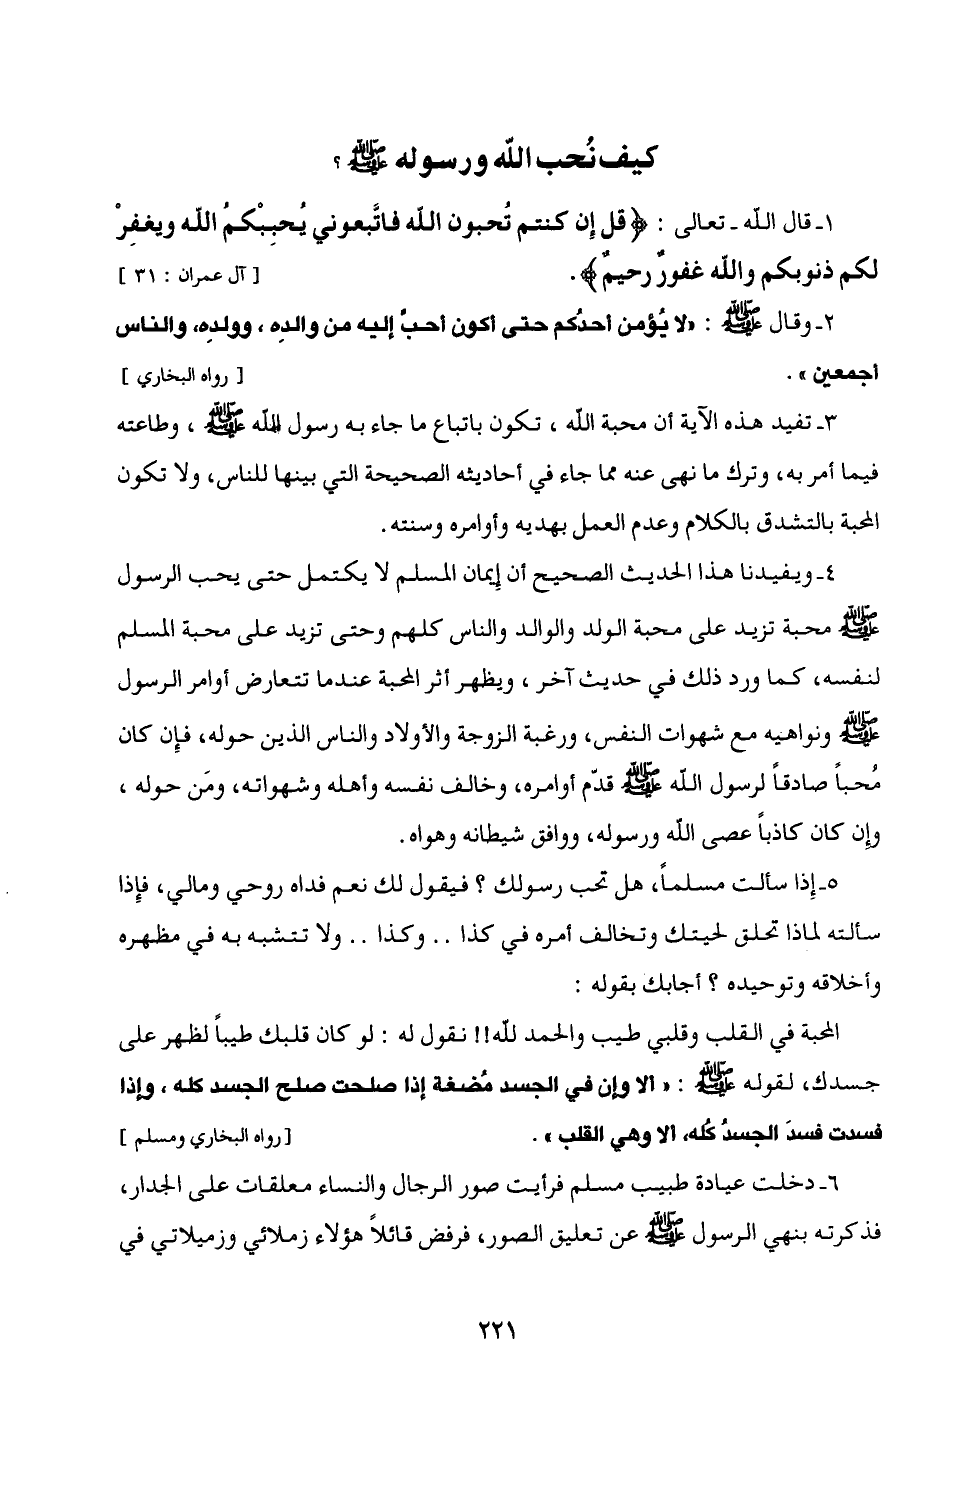 كيف نُحب اللّه ورسوله ﷺ ؟
١ـ قال اللّه ـ تعالى : ﴿ قل إن كنتم تُحبون اللّه فاتَّبعوني يُحبِبْكمُ اللّه ويغفِرْ
لكم ذنوبكم واللّه غفورٌ رحيمٌ ﴾ . [ آل عمران : ٣١ ]
٢ـ وقال ﷺ : «لا يُؤمن أحدُكم حتى أكون أحبَّ إليه من والدِه ، وولدِه، والناس
أجمعين » . [ رواه البخاري ]
٣ـ تفيد هذه الآية أن محبة اللّه ، تكون باتباع ما جاء به رسول اللّه ﷺ ، وطاعته
فيما أمر به، وترك ما نهى عنه مما جاء في أحاديثه الصحيحة التي بينها للناس، ولا تكون
المحبة بالتشدق بالكلام وعدم العمل بهديه وأوامره وسنته.
٤ـ ويفيدنا هذا الحديث الصحيح أن إيمان المسلم لا يكتمل حتى يحب الرسول
ﷺ محبة تزيد على محبة الولد والوالد والناس كلهم وحتى تزيد على محبة المسلم
لنفسه، كما ورد ذلك في حديث آخر ، ويظهر أثر المحبة عندما تتعارض أوامر الرسول
ﷺ ونواهيه مع شهوات النفس، ورغبة الزوجة والأولاد والناس الذين حوله، فإن كان
مُحباً صادقاً لرسول اللّه ﷺ قدّم أوامره، وخالف نفسه وأهله وشهواته، ومَن حوله ،
وإن كان كاذباً عصى اللّه ورسوله، ووافق شيطانه وهواه.
٥ـ إذا سألت مسلماً، هل تحب رسولك ؟ فيقول لك نعم فداه روحي ومالي، فإذا
سألته لماذا تحلق لحيتك وتخالف أمره في كذا .. وكذا .. ولا تتشبه به في مظهره
وأخلاقه وتوحيده ؟ أجابك بقوله :
المحبة في القلب وقلبي طيب والحمد للّه!! نقول له : لو كان قلبك طيباً لظهر على
جسدك، لقوله ﷺ : « ألا وإن في الجسد مُضغة إذا صلحت صلح الجسد كله ، وإذا
فسدت فسدَ الجسدُ كُله، ألا وهي القلب » . [رواه البخاري ومسلم ]
٦ـ دخلت عيادة طبيب مسلم فرأيت صور الرجال والنساء معلقات على الجدار،
فذكرته بنهي الرسول ﷺ عن تعليق الصور، فرفض قائلاً هؤلاء زملائي وزميلاتي في
٢٢١